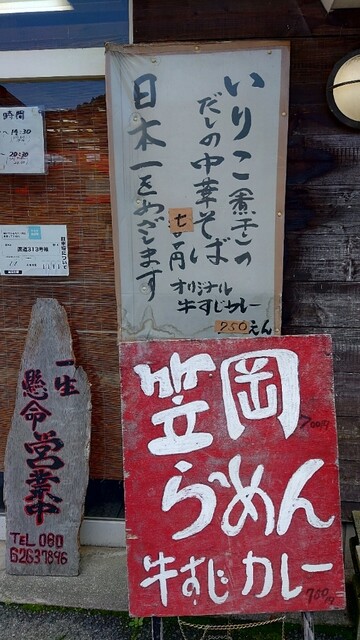 いりこ(煮干)の
だしの中華そば
七〇円
日本一をめざします
オリジナル
牛すじカレー
950えん
笠岡
700円
らーめん
牛すじカレー
時間
14:30
20:30
一生
懸命営業中
TEL 080
62637896